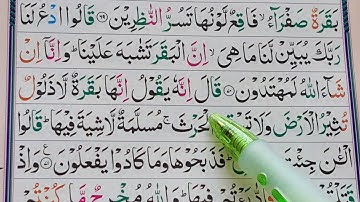 بَقَرَةٌ صَفْرَآءُ ۙ فَاقِعٌ لَّوْنُهَا تَسُرُّ النّٰظِرِيْنَ ﴿۶۹﴾ قَالُوا ادْعُ لَنَا
رَبَّكَ يُبَيِّنْ لَّنَا مَا هِيَ ۙ اِنَّ الْبَقَرَ تَشٰبَهَ عَلَيْنَا ؕ وَاِنَّاۤ اِنْ
شَآءَ اللّٰهُ لَمُهْتَدُوْنَ ﴿۷۰﴾ قَالَ اِنَّهٗ يَقُوْلُ اِنَّهَا بَقَرَةٌ لَّا ذَلُوْلٌ
تُثِيْرُ الْاَرْضَ وَلَا الْحَرْثَ ۚ مُسَلَّمَةٌ لَّا شِيَةَ فِيْهَا ؕ قَالُوا
الْـٰٔنَ جِئْتَ فَذَبَحُوْهَا وَمَا كَادُوْا يَفْعَلُوْنَ ﴿۷۱﴾ وَاِذْ
فِيْهَا ؕ وَاللّٰهُ مُخْرِجٌ مَّا كُنْتُمْ